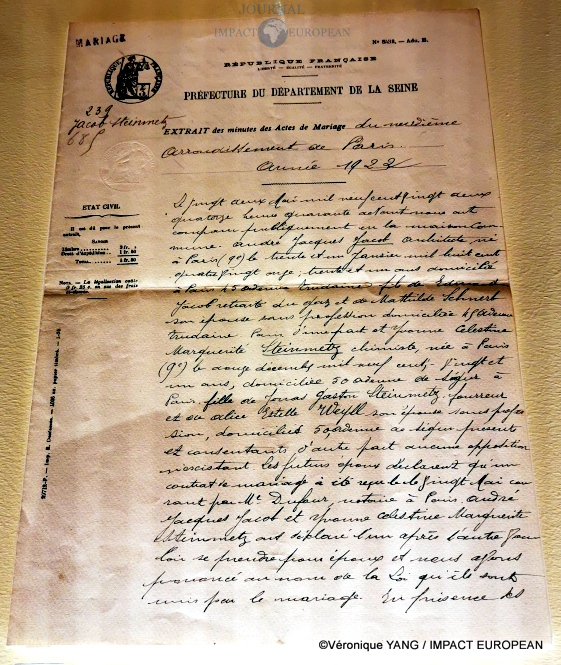 JOURNAL
IMPACT EUROPEAN
MARIAGE
RÉPUBLIQUE FRANÇAISE
LIBERTÉ — ÉGALITÉ — FRATERNITÉ
PRÉFECTURE DU DÉPARTEMENT DE LA SEINE
239
Jacob Steinmetz
685
EXTRAIT des minutes des Actes de Mariage du neuvième
arrondissement de Paris
Année 1922
ETAT CIVIL
Il est dû pour le présent
extrait,
SAVOIR
Total
Le vingt deux Mai mil neuf cent vingt deux
quatorze heures quarante devant nous ont
comparu publiquement en la maison com
mune André Jacques Jacob architecte né
à Paris (9e) le trente et un Janvier mil huit cent
quatre vingt onze, trente et un ans domicilié
à Paris 45 avenue Trudaine, fils de
Jacob retraité du gaz et de Mathilde Schnerb
son épouse sans profession domiciliés 45 avenue
Trudaine Paris d'une part et Yvonne Celestine
Marguerite Steinmetz chimiste, née à Paris
(9e) le douze décembre mil neuf cent, vingt et
un ans, domiciliée 50 avenue de Ségur à
Paris, fille de Jonas Gaston Steinmetz, fourreur
et de Alice Estelle Weyll son épouse sans profes
sion, domiciliés 50, avenue de Ségur présents
et consentants d'autre part aucune opposition
n'existant les futurs époux déclarent qu'un
contrat de mariage a été reçu le vingt Mai cou
rant par Me Dufour, notaire à Paris. André
Jacques Jacob et Yvonne Celestine Marguerite
Steinmetz ont déclaré l'un après l'autre vou
loir se prendre pour époux et nous avons
prononcé au nom de la Loi qu'ils sont
unis par le mariage. En présence de
©Véronique YANG / IMPACT EUROPEAN